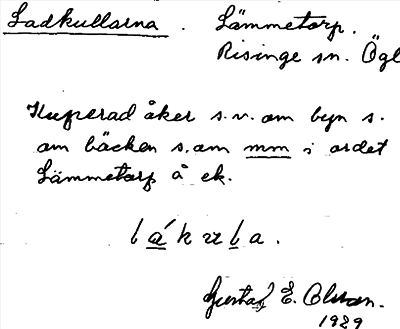 Ladkullarna. Lämmetorp.
Risinge sn. Ögl
Kuperad åker s.v. om byn s.
om bäcken s. om mm i ordet
Lämmetorp å ek.
Gustaf E. Olsson.
1929